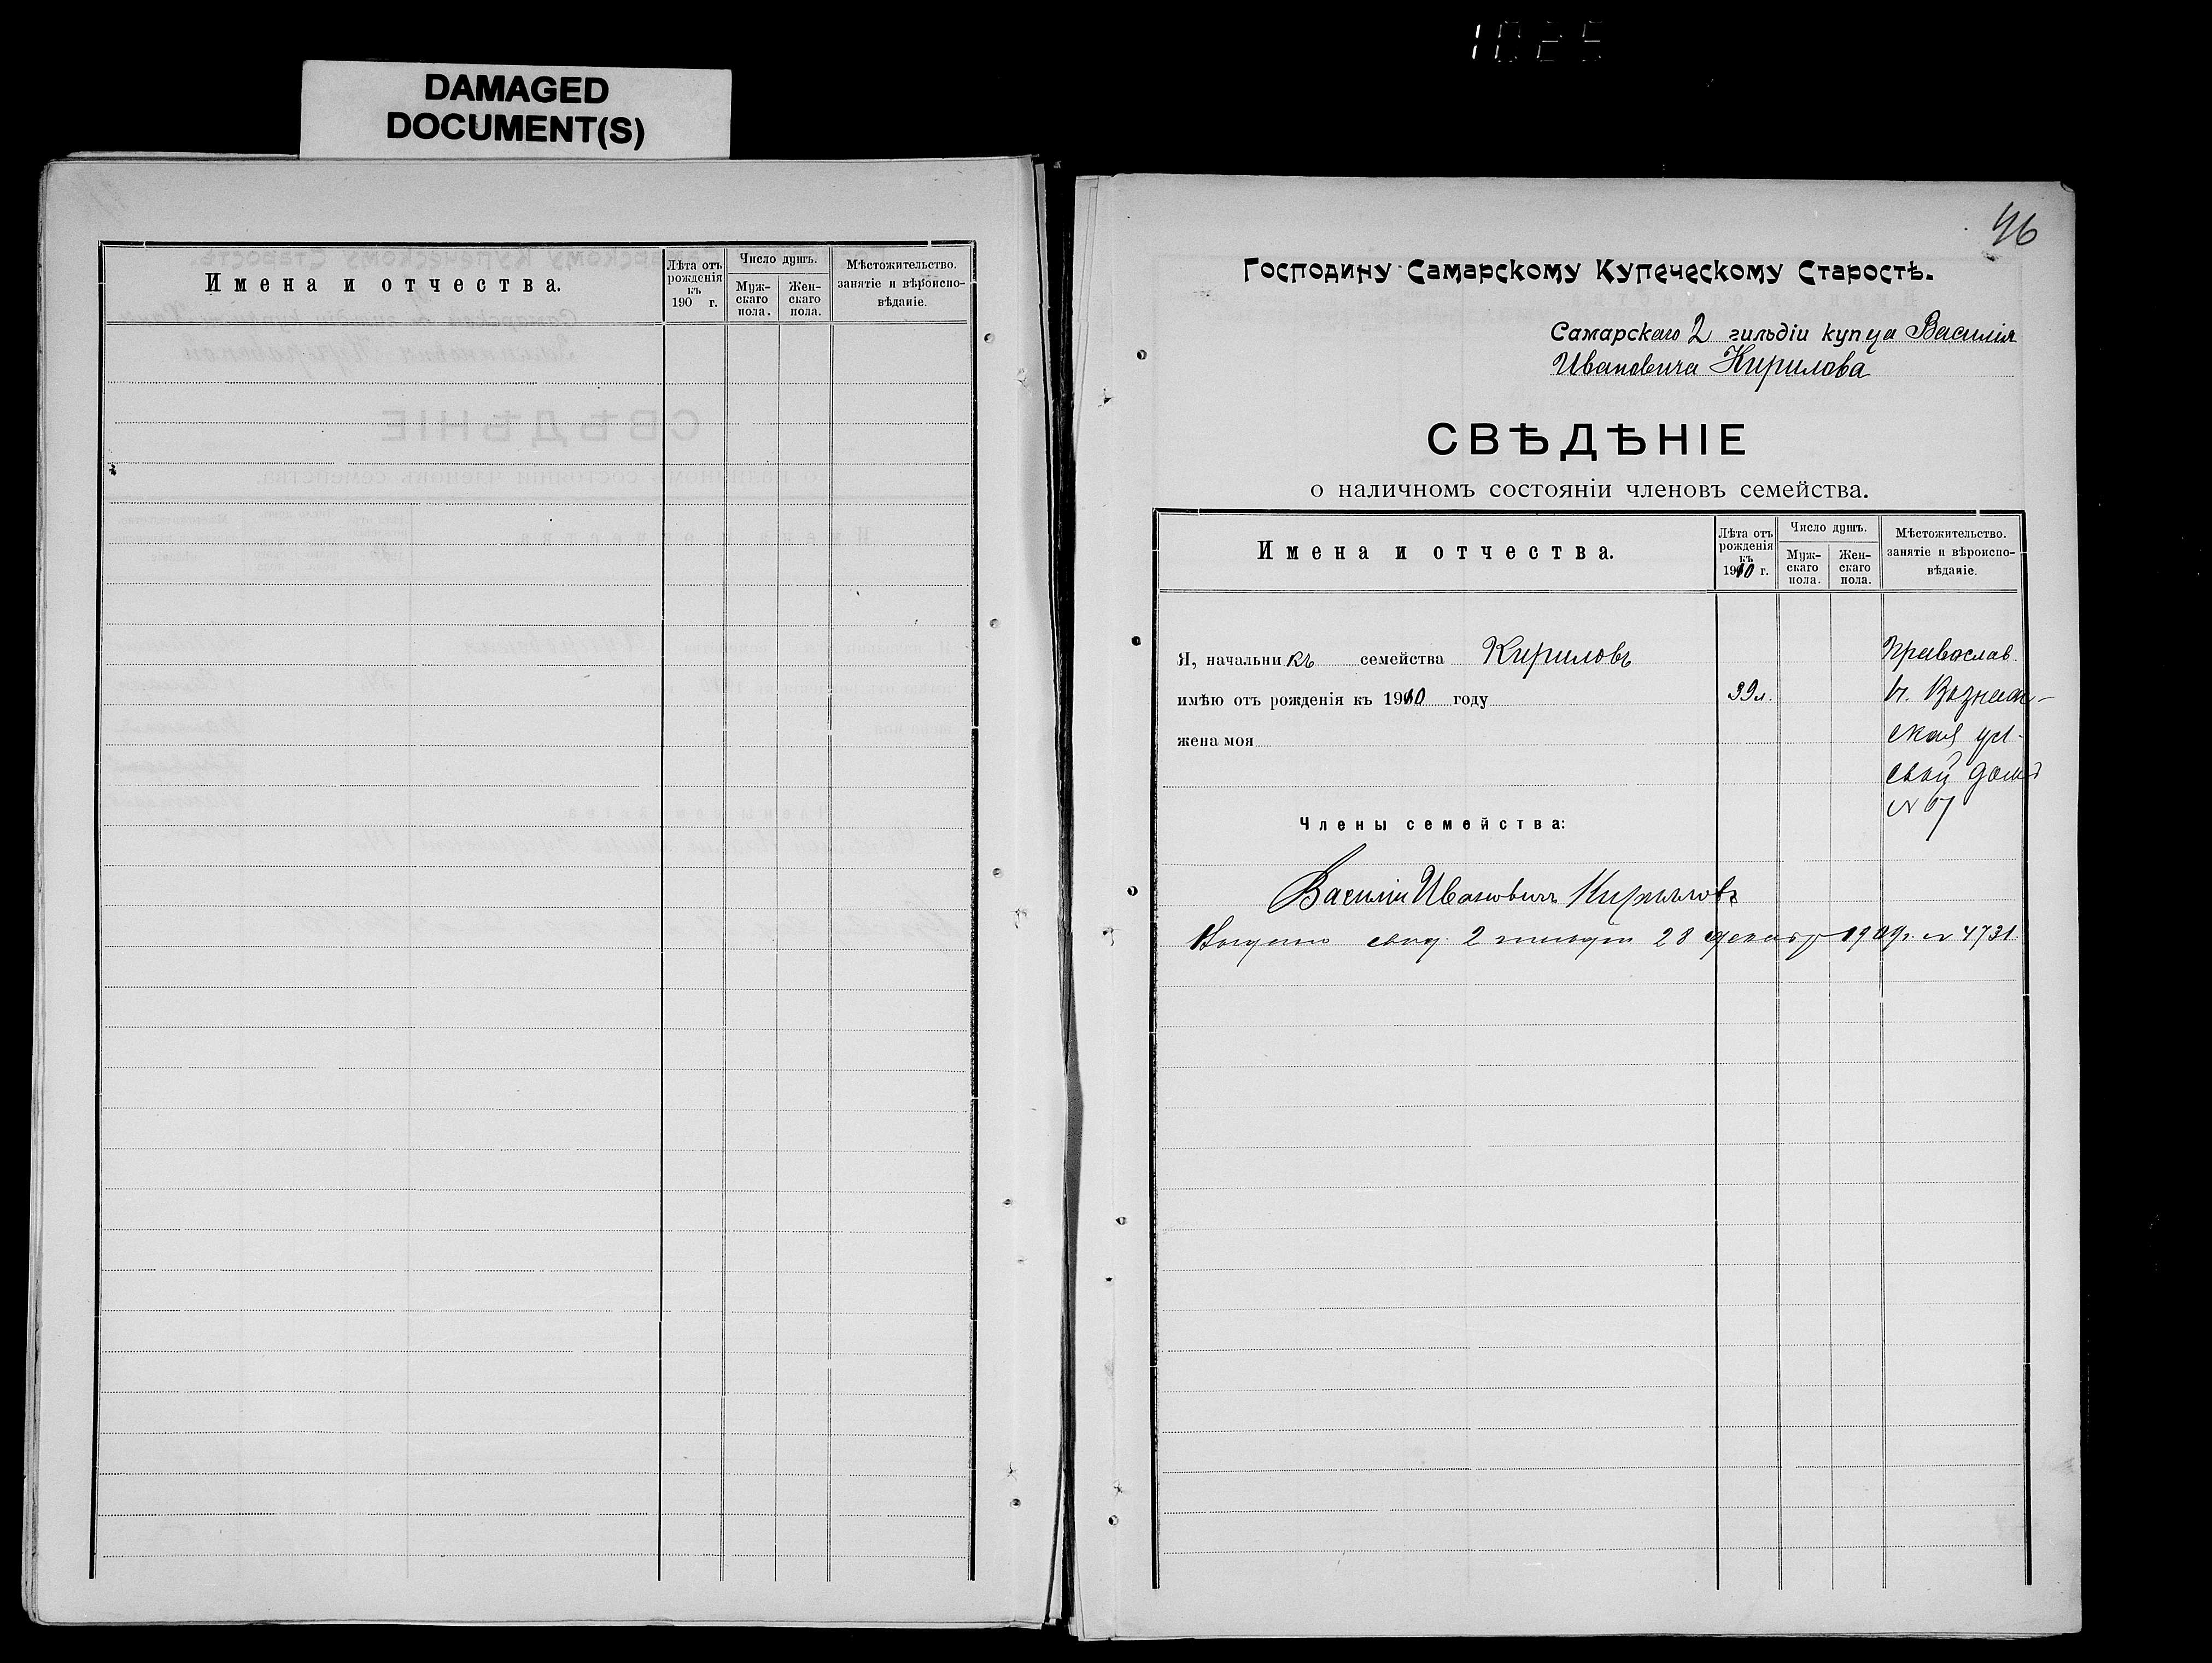 1025
DAMAGED
DOCUMENT(S)
Имена и отчества.
Лѣта отъ рожденія къ 190 г.
Число душъ.
Муж-скаго пола.
Жен-скаго пола.
Мѣстожительство. занятіе и вѣроиспо-вѣданіе.
46
Господину Самарскому Купеческому Старостѣ.
Самарскаго 2 гильдіи купца Василія
Ивановича Кирилова
СВѢДѢНІЕ
о наличномъ состояніи членовъ семейства.
Имена и отчества.
Лѣта отъ рожденія къ 1910 г.
Число душъ.
Муж-скаго пола.
Жен-скаго пола.
Мѣстожительство. занятіе и вѣроиспо-вѣданіе.
Я, начальникъ семейства Кириловъ
Православ.
имѣю отъ рожденія къ 1910 году 39 л.
Вознесен-
жена моя
ская ул.
свой домъ
№ 67
Члены семейства:
Василій Ивановичъ Кириловъ
Выдано свид. 2 гильдіи 28 декабр 1909 г. № 4731